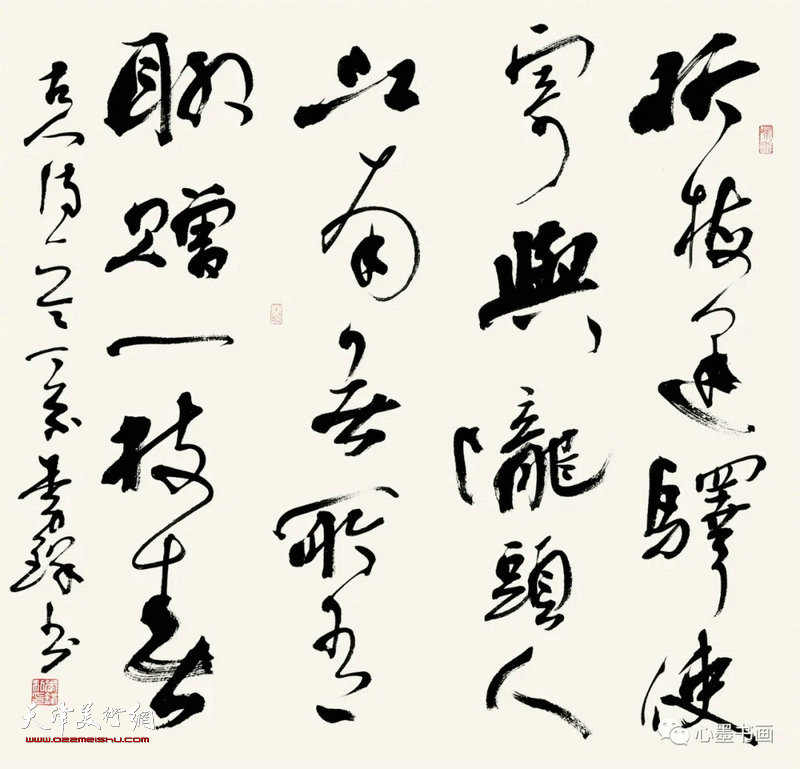 折梅逢驛使
寄與隴頭人
江南無所有
聊贈一枝春
古人诗一首 书
天津美術網
www.022meishu.com
心墨书画